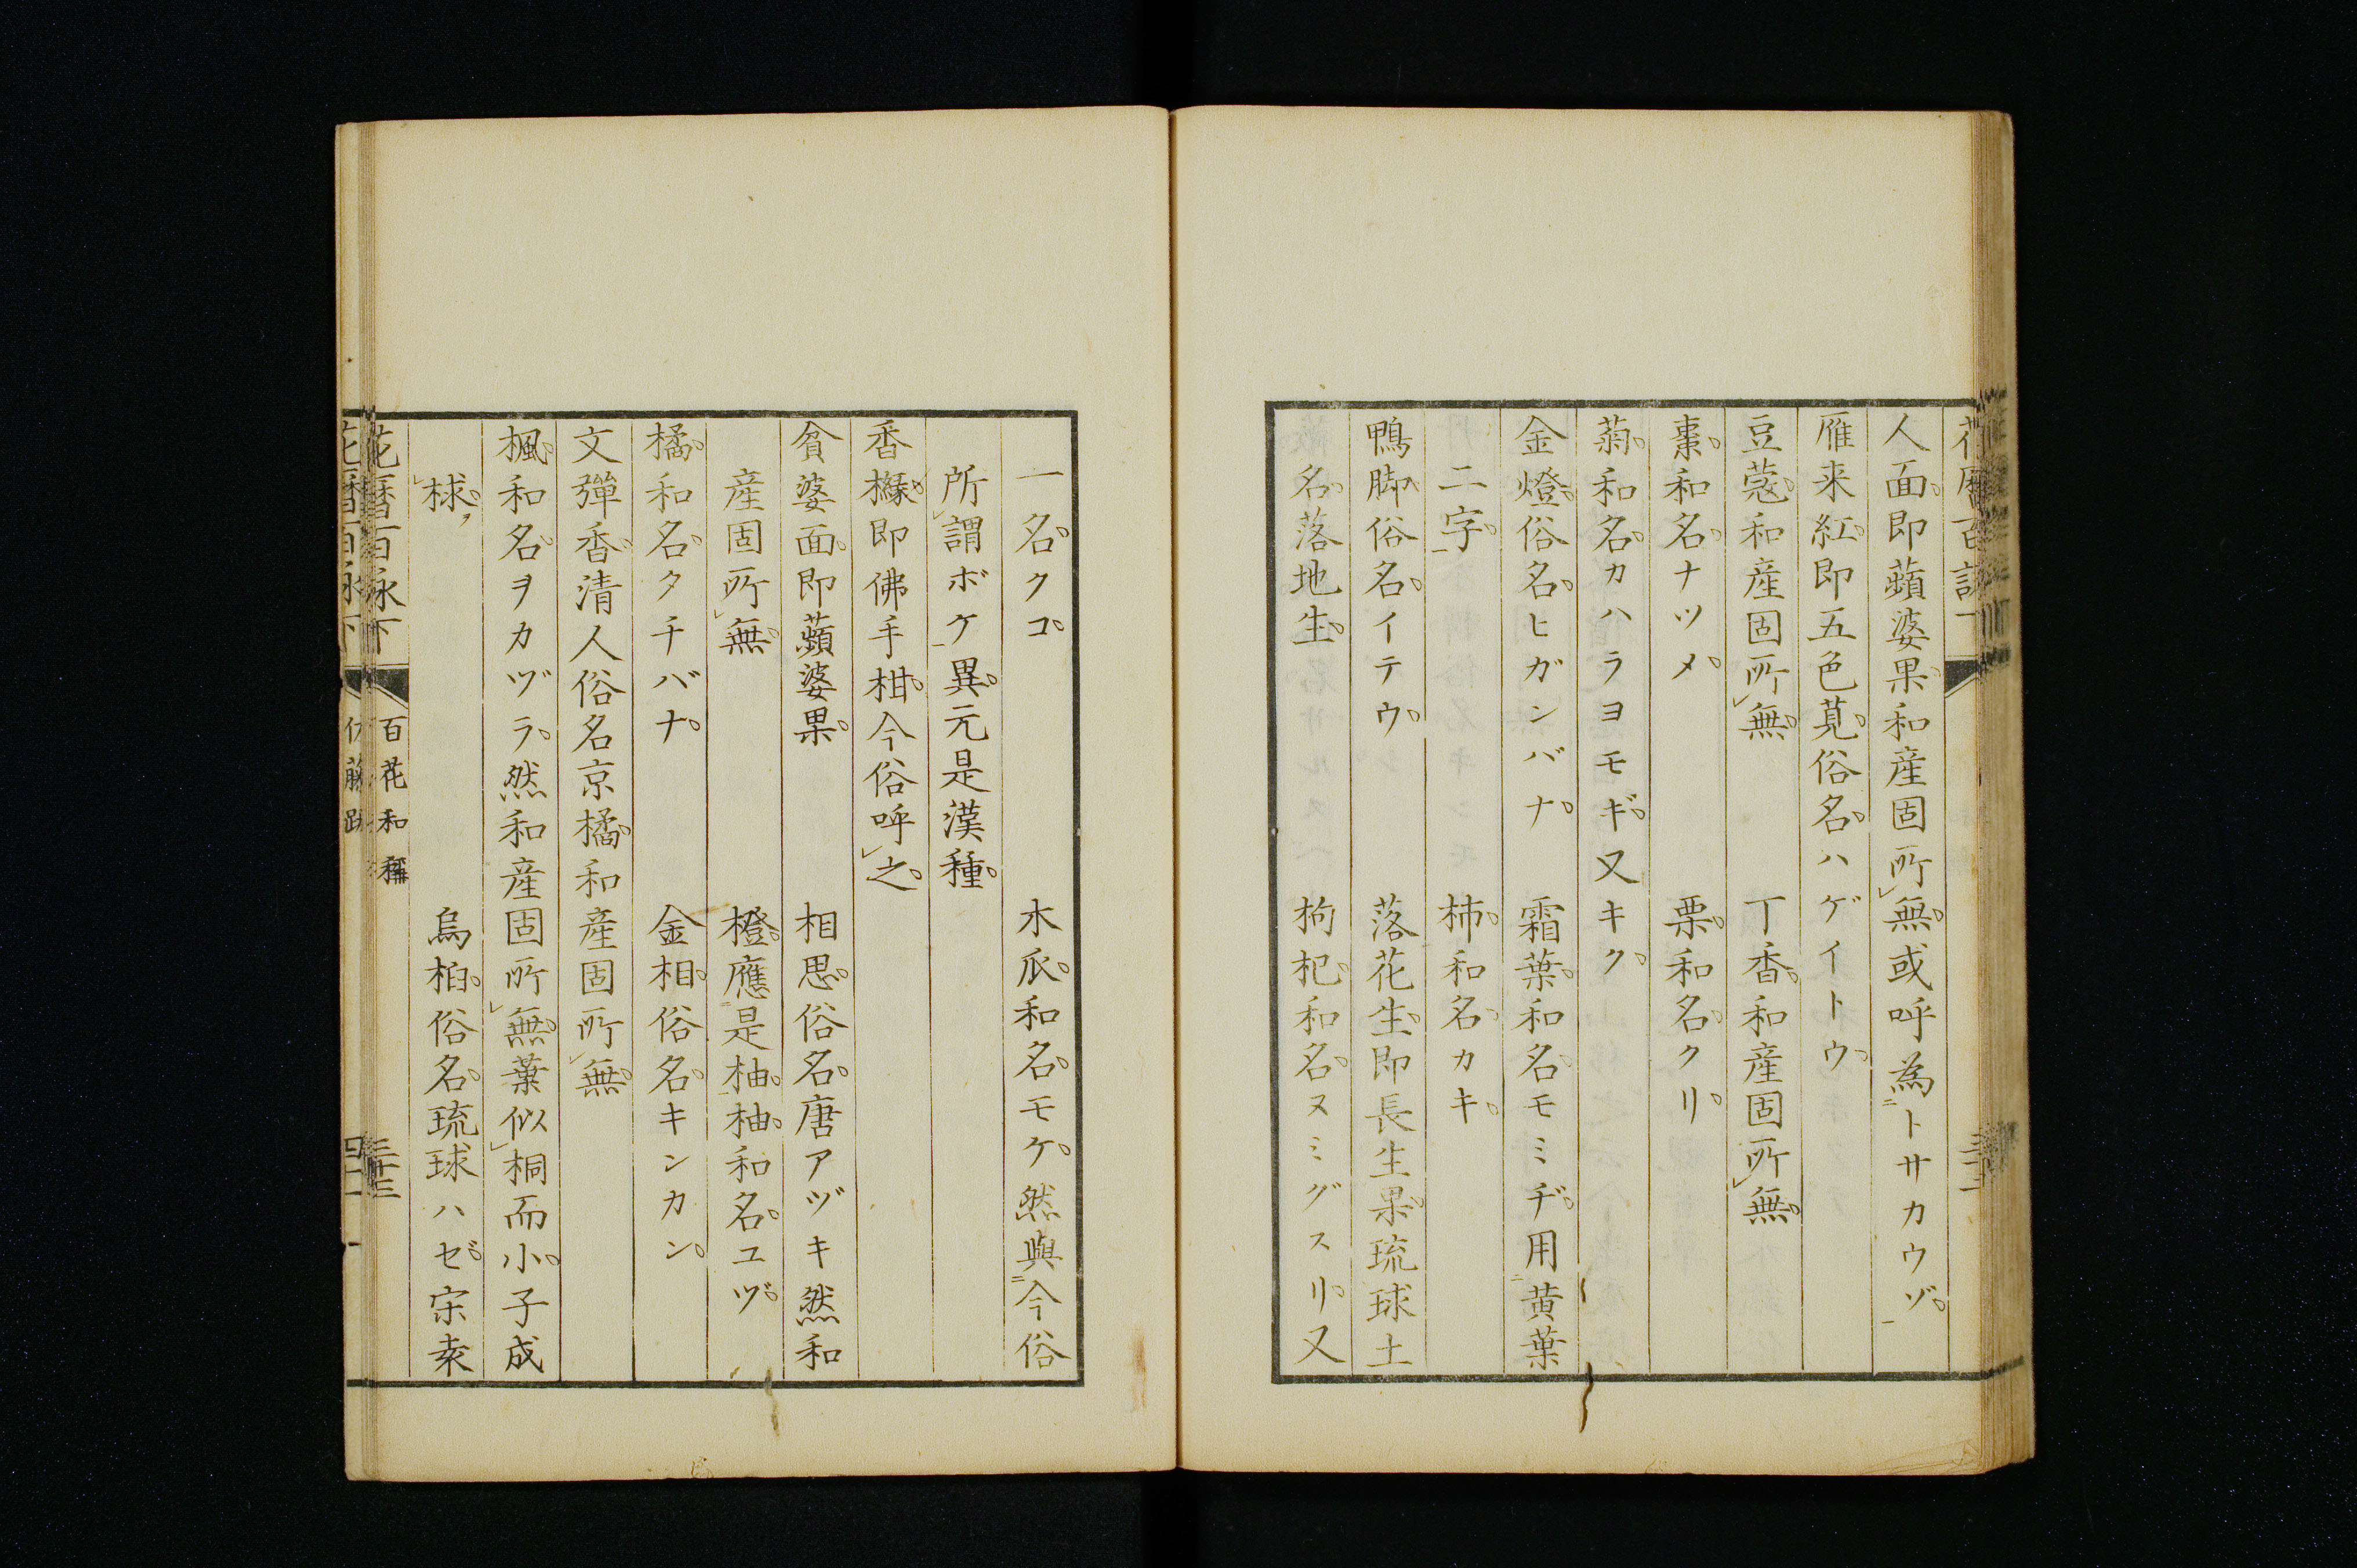 人面即蘋婆果和産固所無或呼為トサカウゾ
雁来紅即五色莧俗名ハゲイトウ
豆蔲和産固所無 丁香和産固所無
棗和名ナツメ 栗和名クリ
菊和名カハラヨモギ又キク
金燈俗名ヒガンバナ 霜葉和名モミヂ用黄葉
二字 柿和名カキ
鴨脚俗名イテウ 落花生即長生果琉球土
名落地生 枸杞和名ヌミグスリ又
一名クコ 木瓜和名モケ然與今俗
所謂ボケ異元是漢種
香櫞即佛手柑今俗呼之
貧婆面即蘋婆果 相思俗名唐アヅキ然和
産固所無 橙應是柚柚和名ユヅ
橘和名タチバナ 金柑俗名キンカン
文彈香清人俗名京橘和産固所無
楓和名ヲカヅラ然和産固所無葉似桐而小子成
梂 烏桕俗名琉球ハゼ宗素
花暦百詠下 百花和稱 三十三